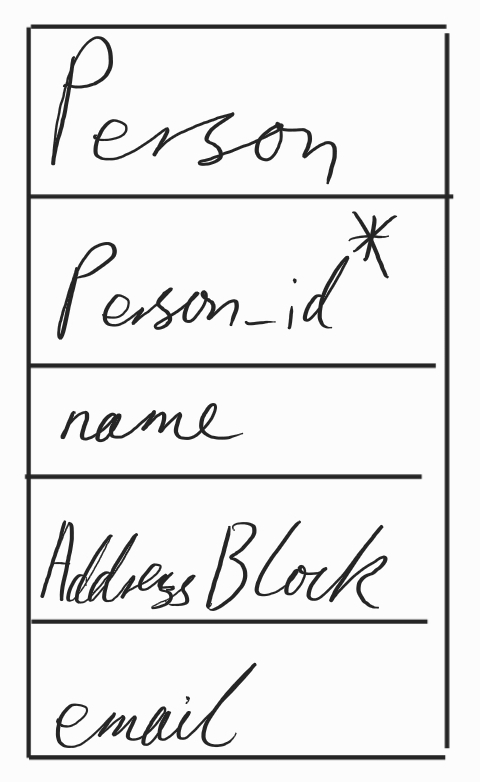 Person
Person_id*
name
Address Block
email